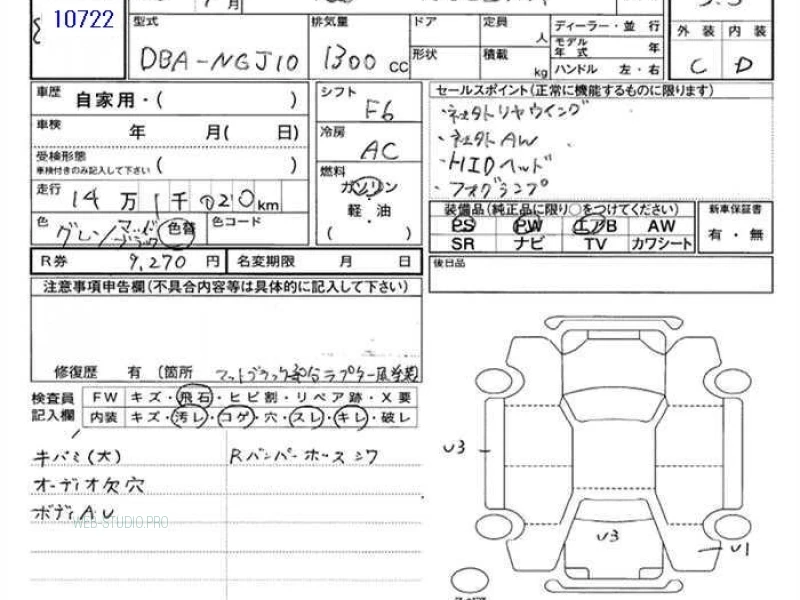 10722
型式
DBA-NGJ10
排気量
1300 cc
ドア
定員
人
形状
積載
kg
ディーラー・並 行
モデル年式 年
ハンドル 左・右
外 装 内 装
C D
車歴 自家用・( )
車検 年 月( 日)
受検形態
車検付きのみ記入して下さい ( )
走行 14万 1千 020km
色 グレーンマットブラック 色替 色コード
シフト
F6
冷房
AC
燃料
ガソリン
・
軽・油
( )
セールスポイント(正常に機能するものに限ります)
・ネオクトリヤウイング
・ネオクトAW
・HIDヘッド
・フォグランプ
装備品(純正品に限り○をつけてください)
PS PW エアB AW
SR ナビ TV カワシート
新車保証書
有・無
後日品
R券 9,270 円 名変期限 月 日
注意事項申告欄(不具合内容等は具体的に記入して下さい)
修復歴 有(箇所 マットブラック部分ラプター風塗装
検査員記入欄
FW キズ・飛石・ヒビ割・リペア跡・X要
内装 キズ・汚レ・コゲ・穴・スレ・キレ・破レ
キバミ(大)
オーディオ欠穴
ボディAU
Rバンパーホースシワ
WEB-STUDIO.PRO
U3
U3
U1